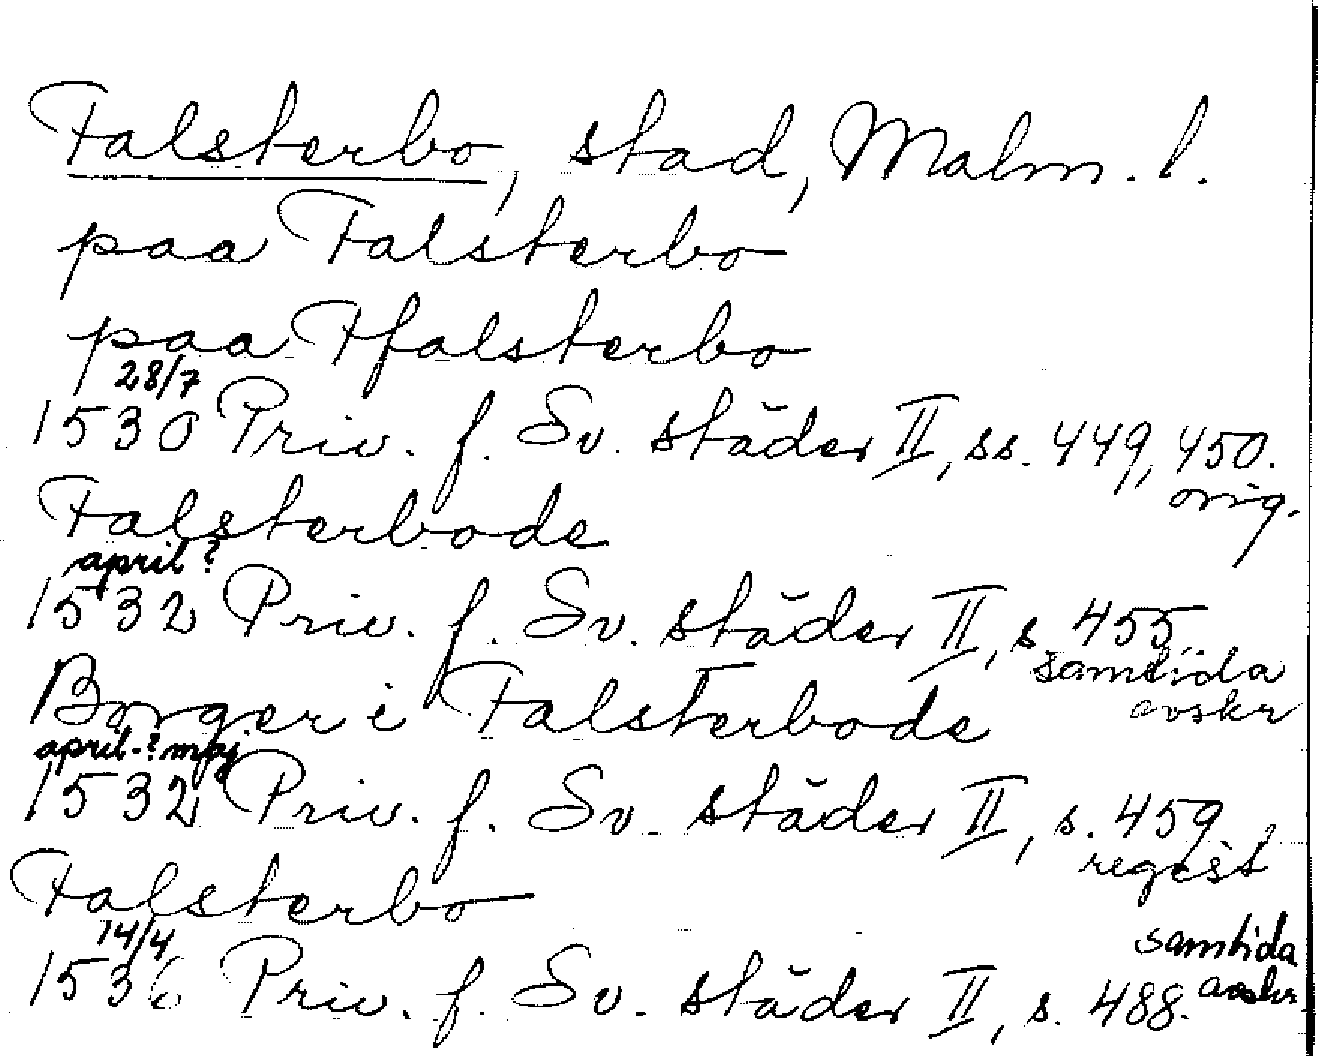 Falsterbo, stad, Malm. l.
paa Falsterbo
paa Ffalsterbo
28/7
1530 Priv. f. Sv. städer II, ss. 449, 450.
orig.
Falsterbode
april?
1532 Priv. f. Sv. städer II, s. 455
samtida
avskr
Borger i Falsterbode
april-? maj
1532 Priv. f. Sv. städer II, s. 459
regest
Falsterbo
14/4
samtida
1536 Priv. f. Sv. städer II, s. 488. avskr.